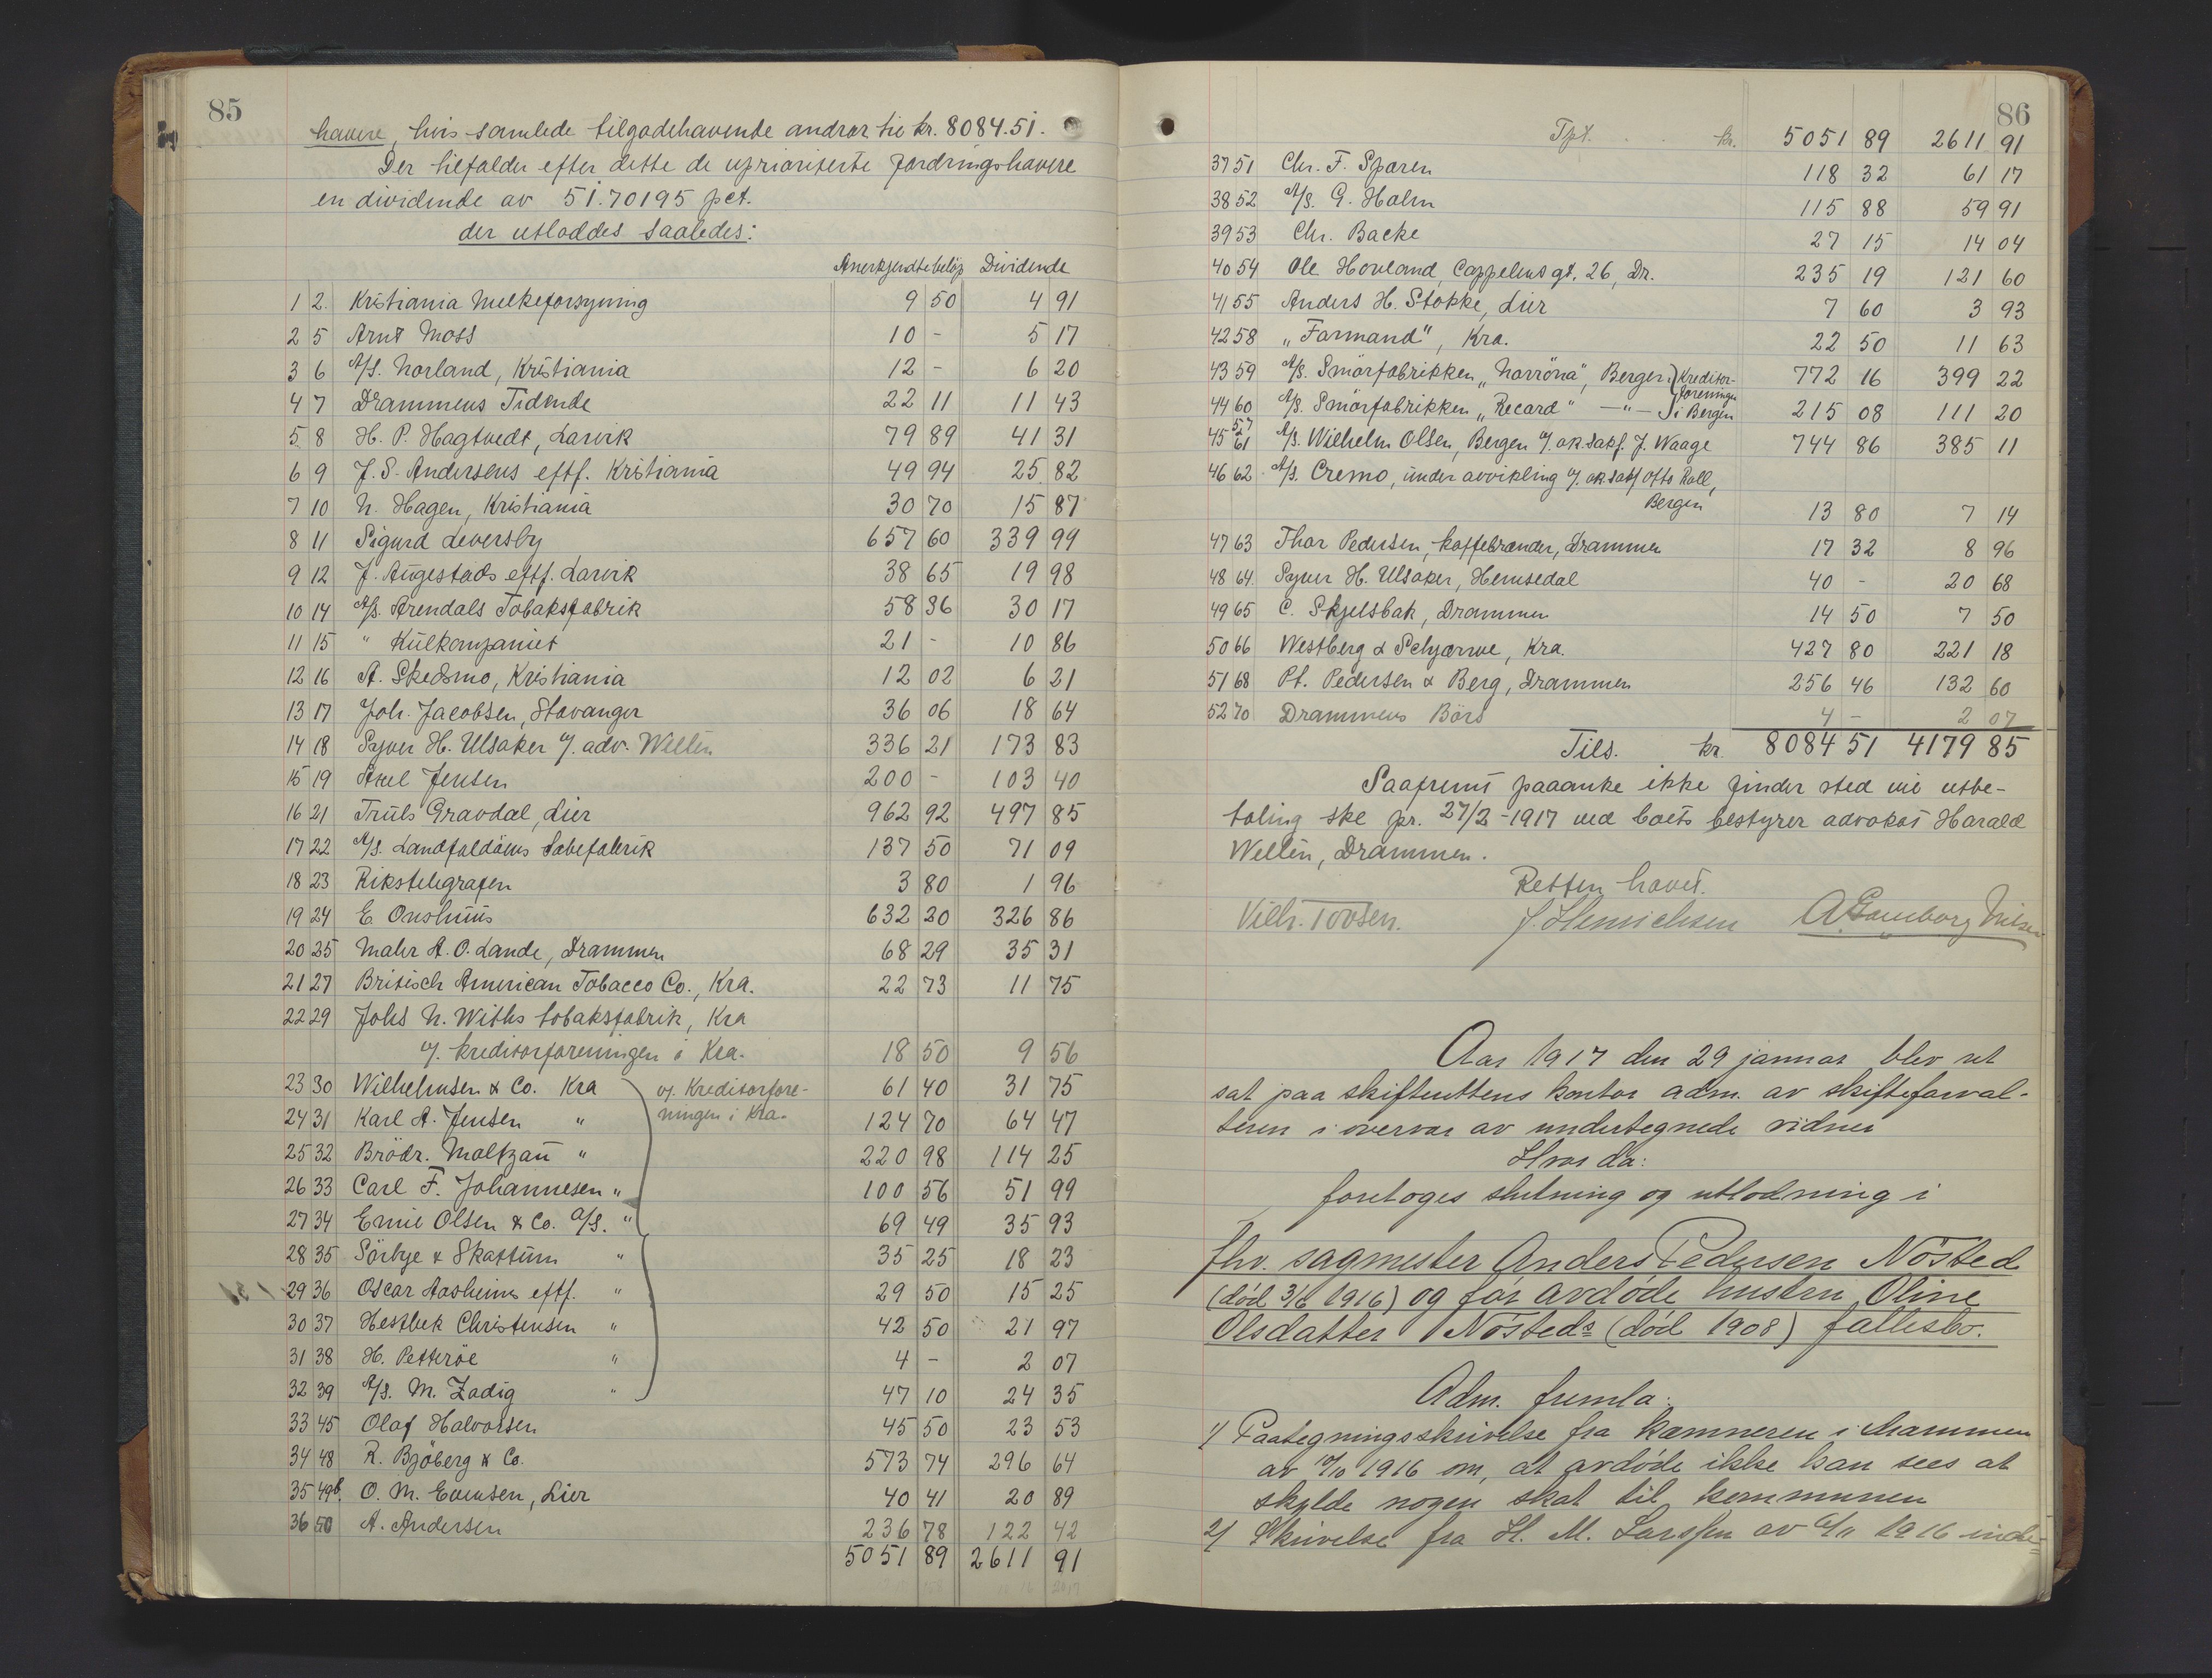 85
havere, hvis samlede tilgodehavende andrar til kr. 8084.51.
Der tilfalder efter dette de uprioriterte fordringshavere
en dividende av 51.70195 pct.
der utloddes saaledes:
Anerkjendte beløp Dividende
1 2. Kristiania Melkeforsyning 9 50 4 91
2 5 Arnt Moss 10 - 5 17
3 6 A/S. Norland, Kristiania 12 - 6 20
4 7 Drammens Tidende 22 11 11 43
5 8 H. P. Hagtvedt, Larvik 79 89 41 31
6 9 J. S. Andersens eftf. Kristiania 49 94 25 82
7 10 N. Hagen, Kristiania 30 70 15 87
8 11 Sigurd Leversby 657 60 339 99
9 12 J. Augestads eftf. Larvik 38 65 19 98
10 14 A/S. Arendals Tobaksfabrik 58 36 30 17
11 15 " Kulkompaniet 21 - 10 86
12 16 A. Skedsmo, Kristiania 12 02 6 21
13 17 Joh. Jacobsen, Stavanger 36 06 18 64
14 18 Syver H. Ulsaker v/. adv. Wellén 336 21 173 83
15 19 Axel Jensen 200 - 103 40
16 21 Truls Gravdal, Lier 962 92 497 85
17 22 A/S. Landfaldöens Sæbefabrik 137 50 71 09
18 23 Rikstelegrafen 3 80 1 96
19 24 E. Onshuus 632 20 326 86
20 25 Maler A. O. Lande, Drammen 68 29 35 31
21 27 Britisch American Tobacco Co., Kra. 22 73 11 75
22 29 Johs N. Withs tobaksfabrik, Kra
v/. kreditorforeningen i Kra. 18 50 9 56
23 30 Wilhelmsen & Co. Kra v/. Kreditorfore- 61 40 31 75
24 31 Karl A. Jensen " ningen i Kra. 124 70 64 47
25 32 Brödr. Moltzau " 220 98 114 25
26 33 Carl F. Johannesen " 100 56 51 99
27 34 Emil Olsen & Co. A/S. " 69 49 35 93
28 35 Sörbye & Skattum " 35 25 18 23
29 36 Oscar Aasheims eftf. " 29 50 15 25
30 37 Hestbek Christensen " 42 50 21 97
31 38 H. Petteröe " 4 - 2 07
32 39 A/S. M. Zadig " 47 10 24 35
33 45 Olaf Halvorsen 45 50 23 53
34 48 R. Bjöberg & Co. 573 74 296 64
35 49b. O. M. Evensen, Lier 40 41 20 89
36 50 A. Andersen 236 78 122 42
5051 89 2611 91
86
Tpt. . . kr. 5051 89 2611 91
37 51 Chr. F. Sparen 118 32 61 17
38 52 A/S. G. Holm 115 88 59 91
39 53 Chr. Backe 27 15 14 04
40 54 Ole Hovland, Cappelens gt. 26, Dr. 235 19 121 60
41 55 Anders H. Stokke, Lier 7 60 3 93
42 58 "Farmand", Kra. 22 50 11 63
43 59 A/S. Smörfabrikken "Norröna", Bergen. Kreditor- 772 16 399 22
foreningen
44 60 A/S. Smörfabrikken "Record" — " — i Bergen 215 08 111 20
57
45 61 A/S. Wilhelm Olsen, Bergen v/. o.r.sakf. J. Waage 744 86 385 11
46 62 A/S. Cremo, under avvikling v/. o.r.sakf Otto Roll,
Bergen 13 80 7 14
47 63 Thor Pedersen, kaffebrænder, Drammen 17 32 8 96
48 64 Syver H. Ulsaker, Hemsedal 40 - 20 68
49 65 C. Skjelsbæk, Drammen 14 50 7 50
50 66 Westberg & Schjærve, Kra. 427 80 221 18
51 68 Pt. Pedersen & Berg, Drammen 256 46 132 60
52 70 Drammens Börs 4 - 2 07
Tils. kr. 8084 51 4179 85
Saafremt paaanke ikke finder sted vil utbe-
taling ske pr. 27/2-1917 ved boets bestyrer advokat Harald
Wellén, Drammen.
Retten hævet.
Vilh. Toosen. J. Hinrichsen A. Gamborg Nilsen
Aar 1917 den 29 januar blev ret
sat paa skifterettens kontor adm. av skifteforval-
teren i overvær av undertegnede vidner
Hvor da:
foretoges slutning og utlodning i
fhv. sagmester Anders Pedersen Nösted
(död 3/6 1916) og før avdöde hustru, Oline
Olsdatter Nösteds (död 1908) fællesbo.
Adm. fremla:
1/ Paategningsskrivelse fra kæmneren i Drammen
av 17/10 1916 om, at avdöde ikke kan sees at
skylde nogen skat til kommunen
2/ Skrivelse fra H. M. Larssen av 6/11 1916 inde-